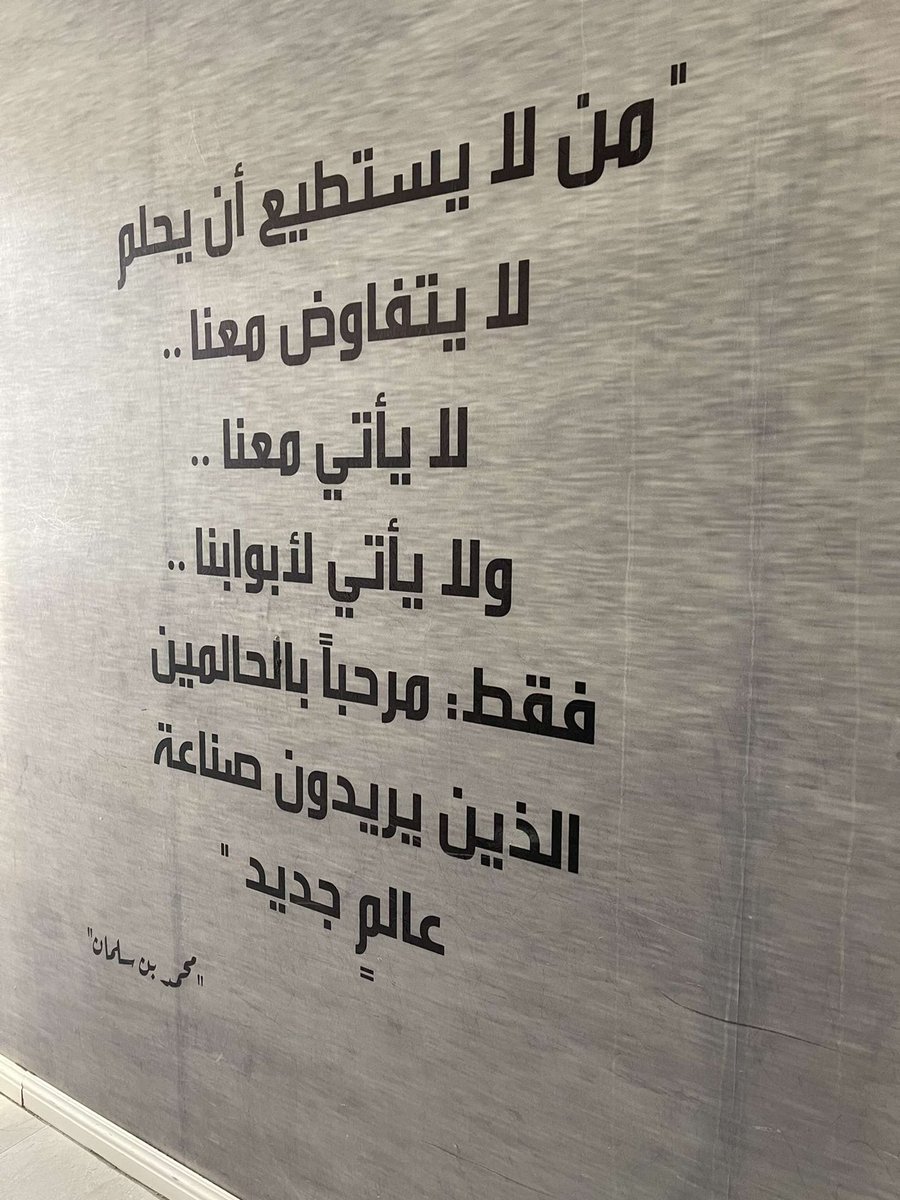 "من لا يستطيع أن يحلم
لا يتفاوض معنا ..
لا يأتي معنا ..
ولا يأتي لأبوابنا ..
فقط: مرحباً بالحالمين
الذين يريدون صناعة
عالمٍ جديد "
"محمد بن سلمان"